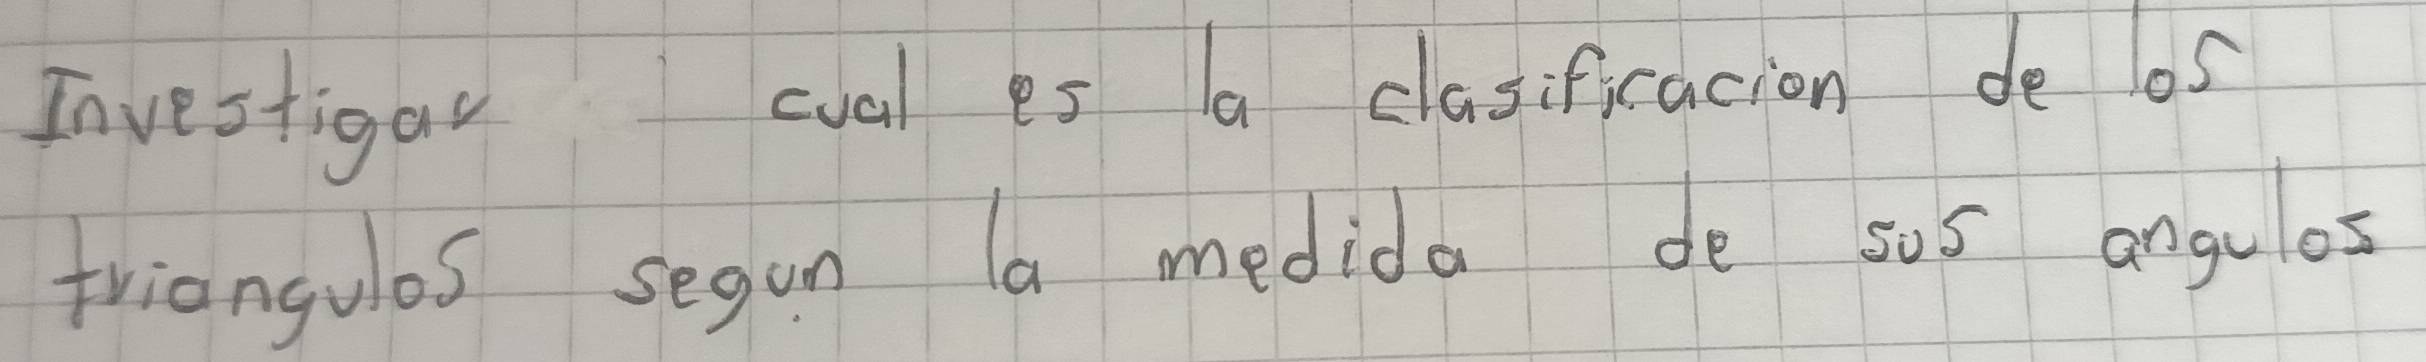 Investigar cual es la clasificacion de los
triangulos segun la medida de sus angulos